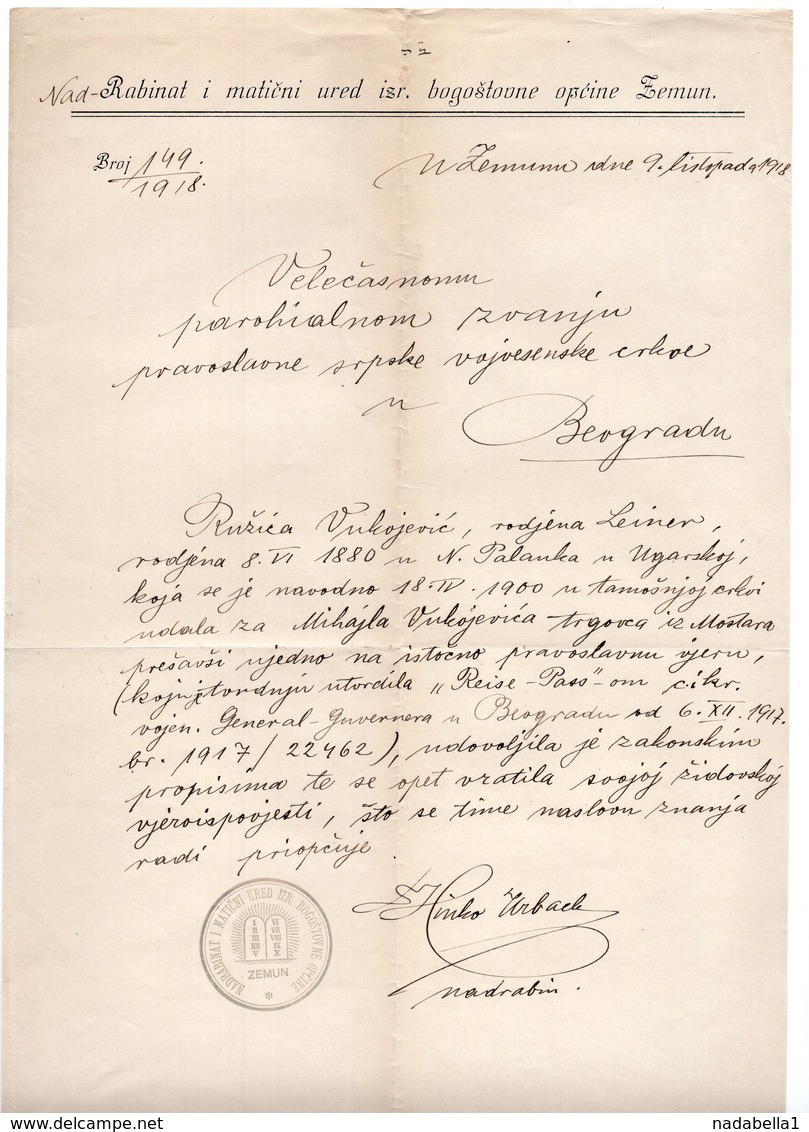 Nad-Rabinat i matični ured izr. bogoštovne općine Zemun.
Broj 149.
1918.
U Zemunu dne 9. listopada 1918
Velečasnomu
parohialnom zvanju
pravoslavne srpske vojvesenske crkve
u
Beogradu
Ružica Vukojević, rodjena Leiner,
rodjena 8. VI 1880 u N. Palanka u Ugarskoj,
koja se je navodno 18. IV. 1900 u tamošnjoj crkvi
udala za Mihajla Vukojevića trgovca iz Mostara
prešavši ujedno na istočno pravoslavnu vjeru,
(koju tvrdnju utvrdila „Reise-Pass"-om c. i kr.
vojen. General-Guvernera u Beogradu od 6. XII. 1917.
br. 1917/22462), udovoljila je zakonskim
propisima te se opet vratila svojoj židovskoj
vjeroispovjesti, što se time naslovu znanja
radi priopćuje.
Dr Hinko Urbach
nadrabin.
NADRABINAT I MATIČNI URED IZR. BOGOŠTOVNE OPĆINE
I VI
II VII
III VIII
IIII IX
V X
ZEMUN
delcampe.net
nadabella1